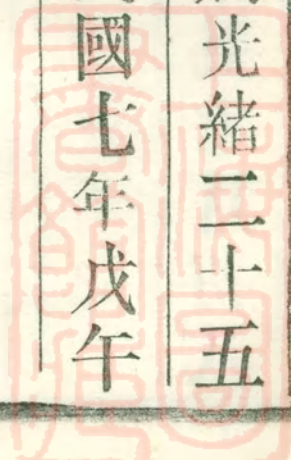 光緒二十五
國七年戊午